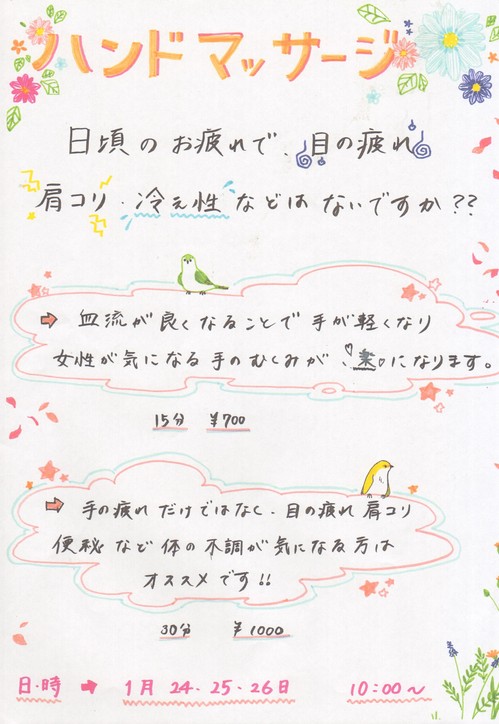 ハンドマッサージ
日頃のお疲れで、目の疲れ
肩コリ・冷え性などはないですか??
➡ 血流が良くなることで手が軽くなり
女性が気になる手のむくみが、楽になります。
15分 ¥700
➡ 手の疲れだけではなく、目の疲れ 肩コリ
便秘など体の不調が気になる方は
オススメです!!
30分 ¥1000
日・時 ➡ 1月 24・25・26日 10:00〜